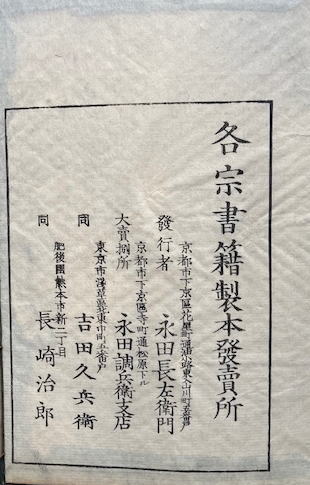 各宗書籍製本發賣所
京都市下京區花屋町通油小路東入山川町
發行者 永田長左衞門
京都市下京區寺町通松原下ル
大賣捌所 永田調兵衞支店
東京市淺草區北東仲町五番戸
同 吉田久兵衞
肥後國熊本市新二丁目
同 長崎治郎